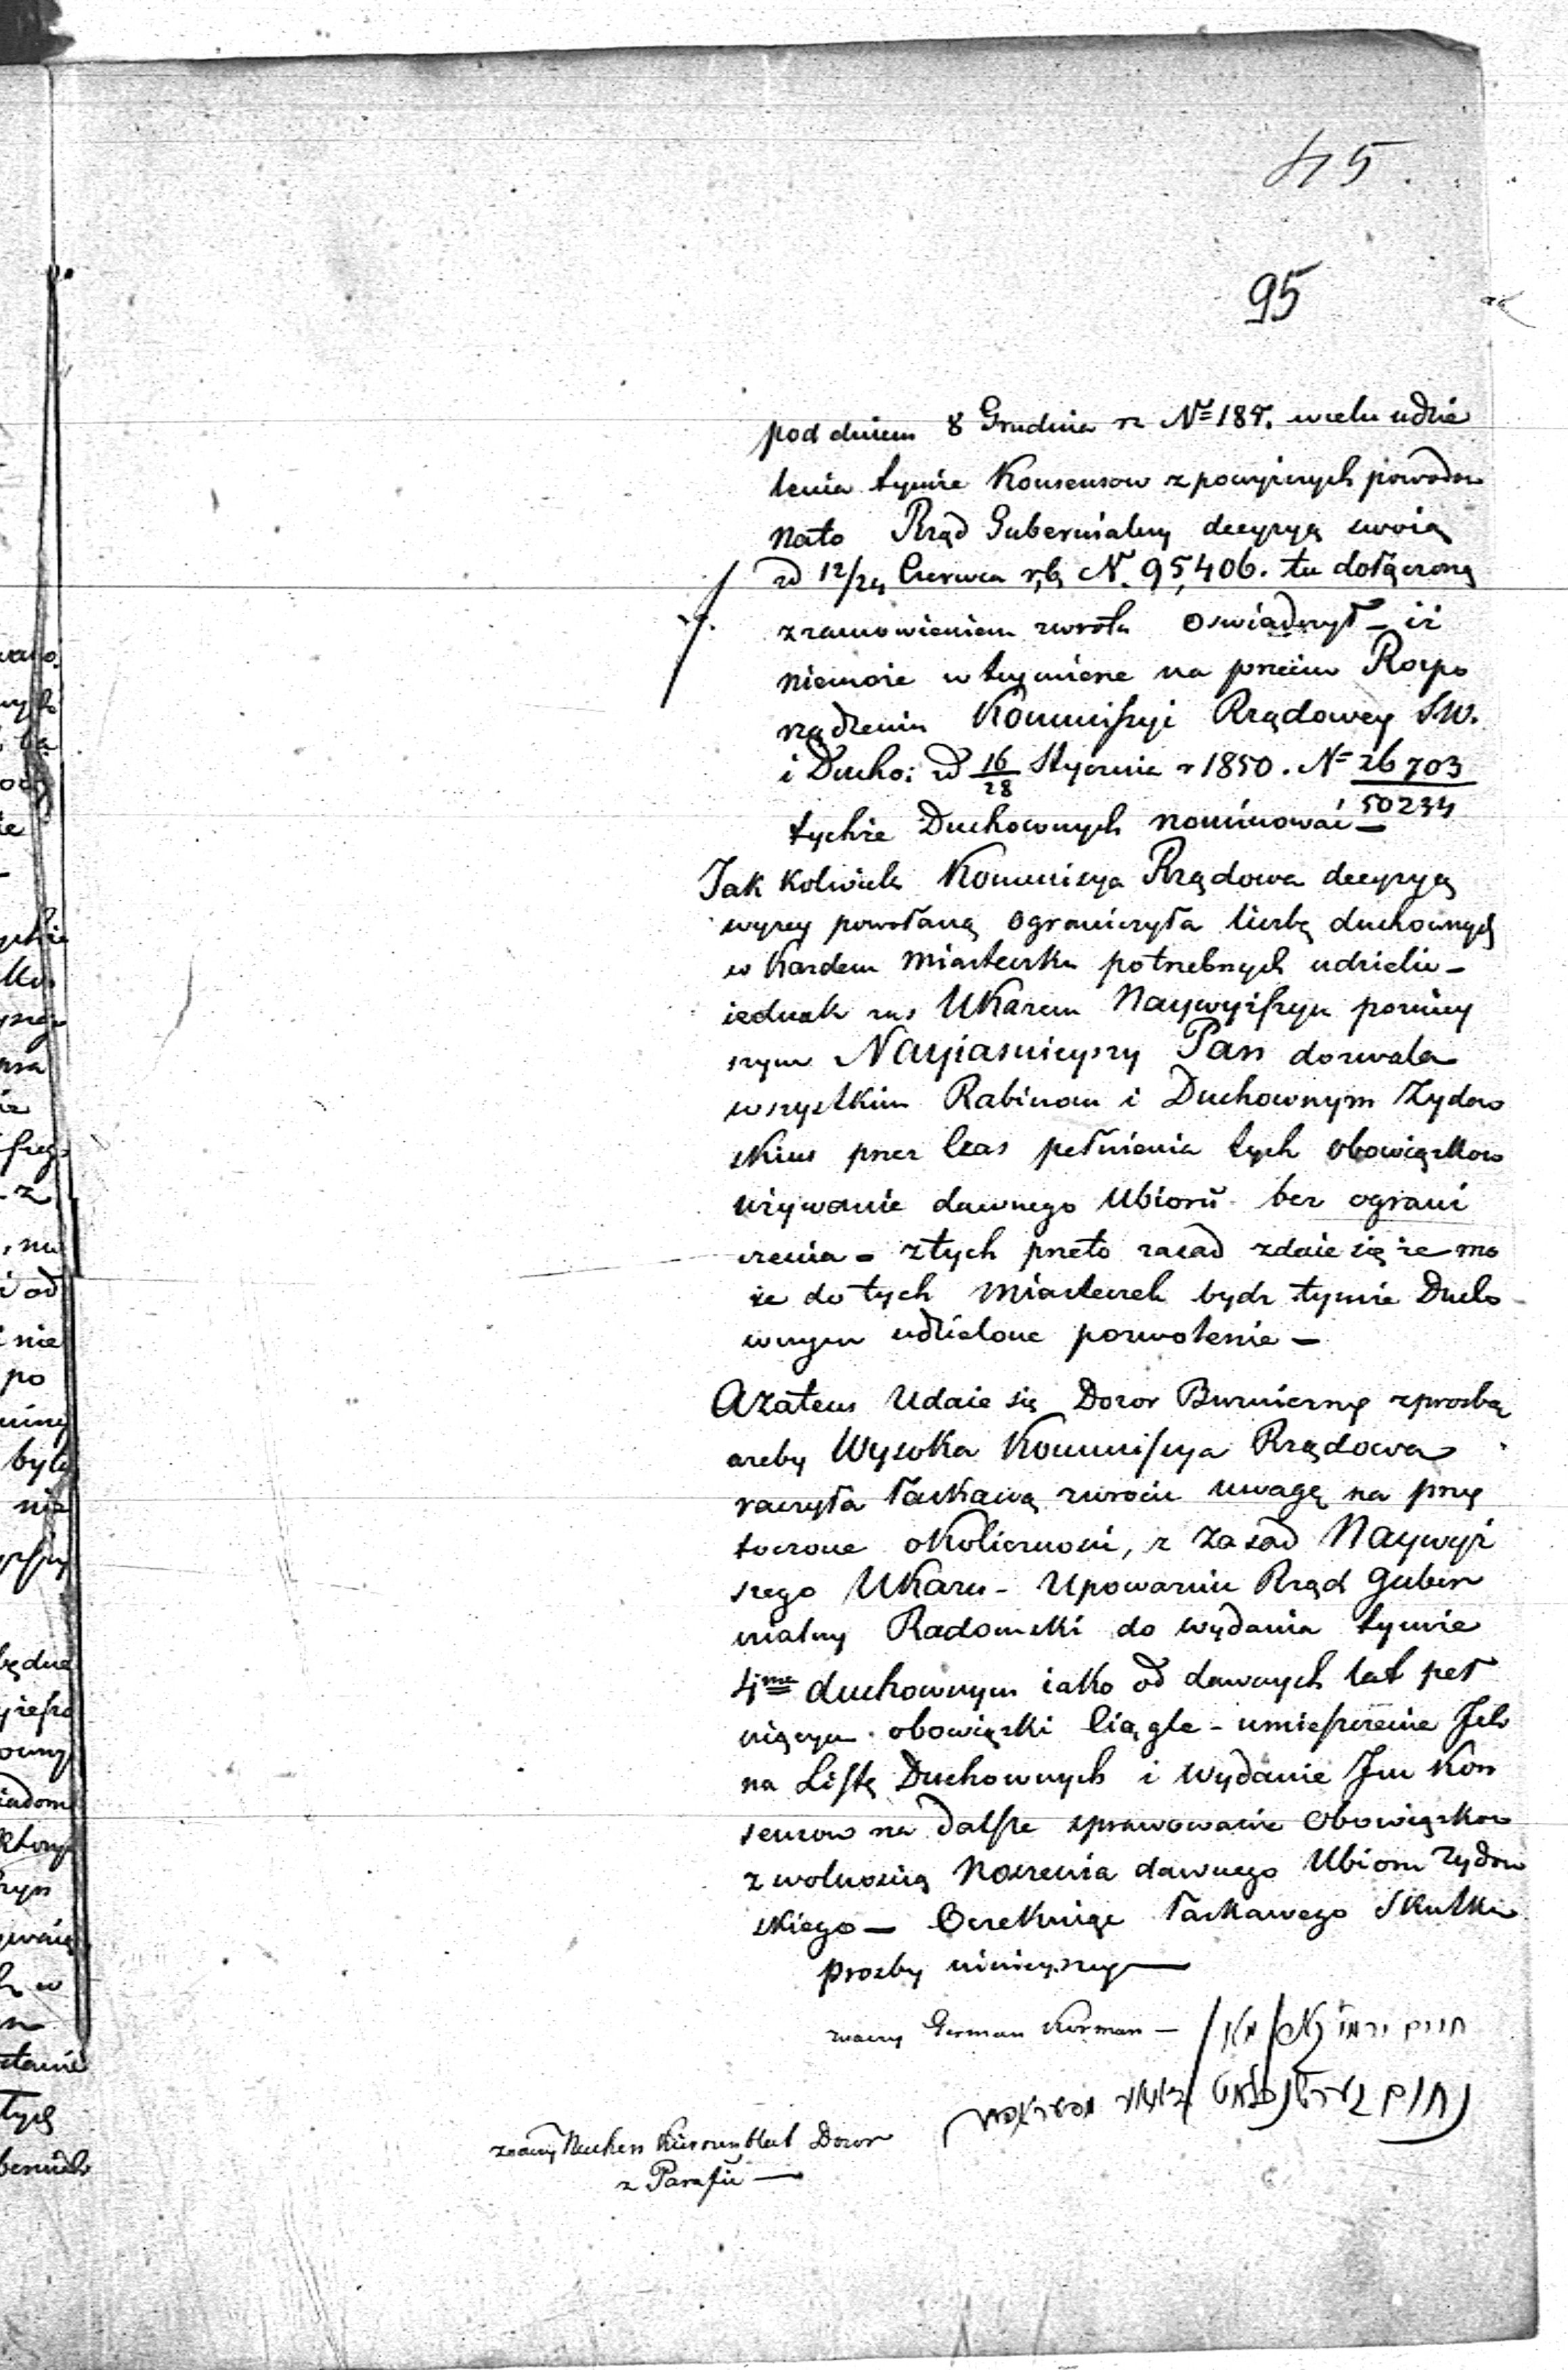 45.
95
pod dniem 8 Grudnia rz №184. wcelu udzie
lenia tymże Konsensow zpowyższych powodow
Nato Rząd Gubernialny decyzyą swoią
zd 12/24 Czerwca r,b, N. 95,406. tu dołączoną
zzamowieniem zwrotu oswiadczył – iż
niemoże wtey mierze na przeciw Rozpo
rządzeniu Kommissyi Rządowey S.W.
i Ducho: zd 16/28 Stycznia r 1850. N= 26703/50234
tychże Duchownych nominować –
Jak kolwiek Kommisya Rządowa decyzyą
wyżey powołaną ograniczyła liczbę duchownych
w Kazdem Miasteczku potrzebnych udzielic –
iednak zas Ukazem Naywyższym poźniey
szym Nayiasnieyszy Pan dozwala
wszystkim Rabinom i Duchownym Zydow
skim przez Czas pełnienia tych obowiązkow
używanie dawnego Ubioru bez ograni
czenia – ztych przeto zasad zdaie się że mo
że do tych Miasteczek bydz tymże Ducho
wnym udzielone pozwolenie –
Azatem Udaie się Dozor Bozniczny zprozbą
azeby Wysoka Kommissya Rządowa
raczyła łaskawą zwrócic uwagę na przy
toczone okolicznosci, z Zasad Naywyż
szego Ukazu – Upowaznic Rząd Guber
nialny Radomski do wydania tymże
4ᵐ duchownym iako od dawnych lat peł
niącym obowiązki Ciągle – umieszczenie Ich
na Listę Duchownych i Wydanie Im Kon
sensow na dalsze sprawowanie Obowiązkow
z wolnoscią Noszenia dawnego Ubioru Zydow
skiego – Oczekuiąc łaskawego Skutku
prozby ninieyszey —
znaczy German Korman –
חיים
נחום
znaczy Nuchen Kierszenblat Dozor
z Parafii —